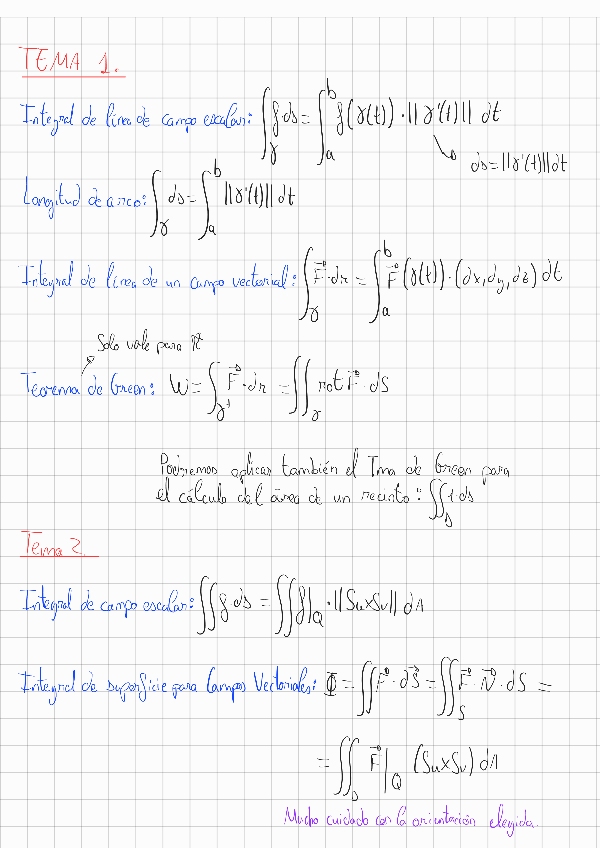 TEMA 1.
Integral de línea de campo escalar: ∫_γ f·ds = ∫_a^b f(γ(t))·||γ'(t)|| dt
ds = ||γ'(t)|| dt
Longitud de arco: ∫_γ ds = ∫_a^b ||γ'(t)|| dt
Integral de línea de un campo vectorial: ∫_γ F⃗·dr = ∫_a^b F⃗(γ(t))·(dx, dy, dz) dt
Solo vale para
Teorema de Green: W = ∫_γ+ F⃗·dr = ∬_γ rot F⃗·dS
Podremos aplicar también el Tma de Green para
el cálculo del área de un recinto: ∬_D 1·ds
Tema 2.
Integral de campo escalar: ∬ f·ds = ∬ f|_Q·||Su×Sv|| dA
Integral de superficie para Campos Vectoriales: Φ = ∬ F⃗·dS⃗ = ∬_S F⃗·N⃗·dS =
= ∬_D F⃗|_Q (Su×Sv) dA
Mucho cuidado con la orientación elegida.